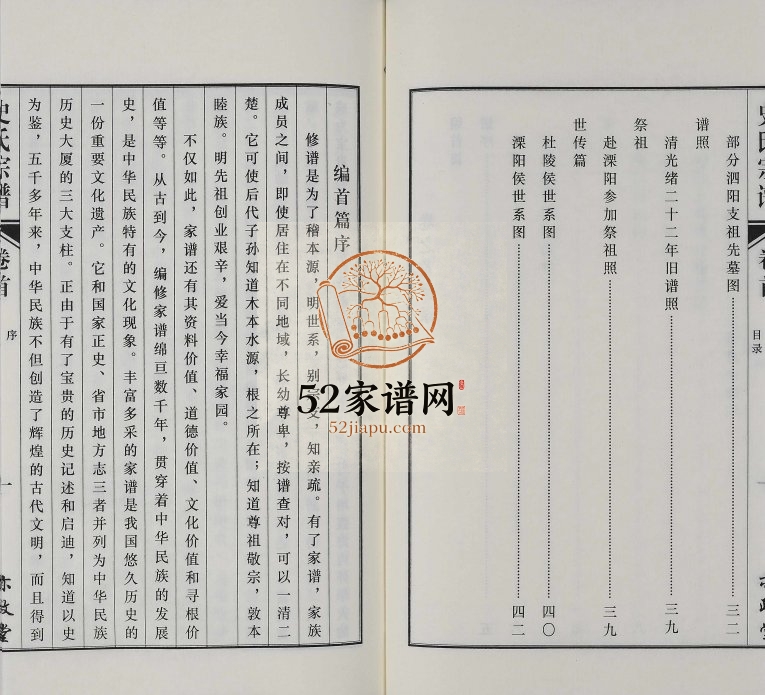 部分泗阳支祖先墓图……三二
谱照
清光绪二十二年旧谱照……三九
祭祖
赴溧阳参加祭祖照……三九
世传篇
杜陵侯世系图……四〇
溧阳侯世系图……四二
史氏宗谱
卷首
目录
编首篇序
修谱是为了稽本源，明世系，别宗支，知亲疏。有了家谱，家族
成员之间，即使居住在不同地域，长幼尊卑，按谱查对，可以一清二
楚。它可使后代子孙知道木本水源，根之所在；知道尊祖敬宗，敦本
睦族。明先祖创业艰辛，爱当今幸福家园。
不仅如此，家谱还有其资料价值、道德价值、文化价值和寻根价
值等等。从古到今，编修家谱绵亘数千年，贯穿着中华民族的发展
史，是中华民族特有的文化现象。丰富多采的家谱是我国悠久历史的
一份重要文化遗产。它和国家正史、省市地方志三者并列为中华民族
历史大厦的三大支柱。正由于有了宝贵的历史记述和启迪，知道以史
为鉴，五千多年来，中华民族不但创造了辉煌的古代文明，而且得到
史氏宗谱
卷首
序
一
52家谱网
52jiapu.com